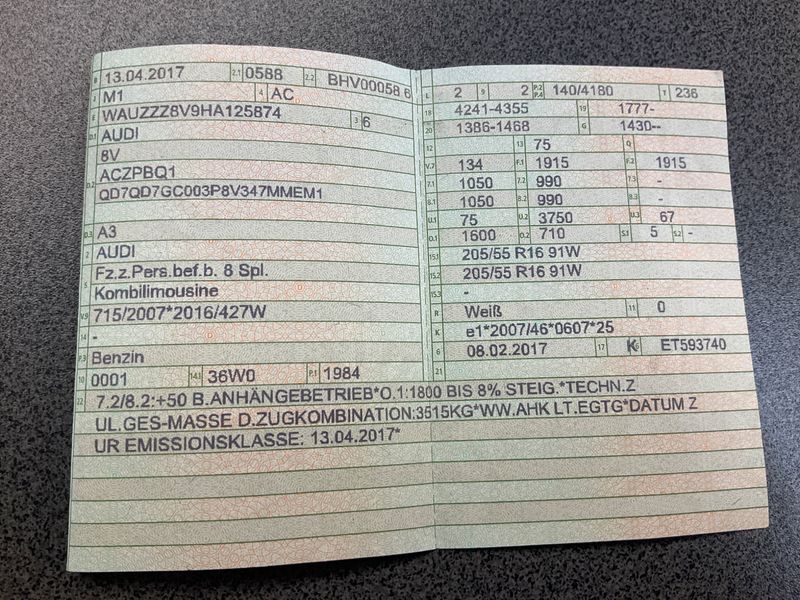 B 13.04.2017 2.1 0588 2.2 BHV00058 6
J M1 4 AC
E WAUZZZ8V9HA125874 3 6
D.1 AUDI
8V
D.2 ACZPBQ1
QD7QD7GC003P8V347MMEM1
D.3 A3
2 AUDI
5 Fz.z.Pers.bef.b. 8 Spl.
Kombilimousine
V.9 715/2007*2016/427W
14 -
P.3 Benzin
10 0001 14.1 36W0 P.1 1984
L 2 9 2 P.2 P.4 140/4180 T 236
18 4241-4355 19 1777-
20 1386-1468 G 1430--
12 13 75 Q
V.7 134 F.1 1915 F.2 1915
7.1 1050 7.2 990 7.3 -
8.1 1050 8.2 990 8.3 -
U.1 75 U.2 3750 U.3 67
O.1 1600 O.2 710 S.1 5 S.2 -
15.1 205/55 R16 91W
15.2 205/55 R16 91W
15.3 -
R Weiß 11 0
K e1*2007/46*0607*25
6 08.02.2017 17 K 16 ET593740
21
22 7.2/8.2:+50 B.ANHÄNGEBETRIEB*O.1:1800 BIS 8% STEIG.*TECHN.Z
UL.GES-MASSE D.ZUGKOMBINATION:3515KG*WW.AHK LT.EGTG*DATUM Z
UR EMISSIONSKLASSE: 13.04.2017*